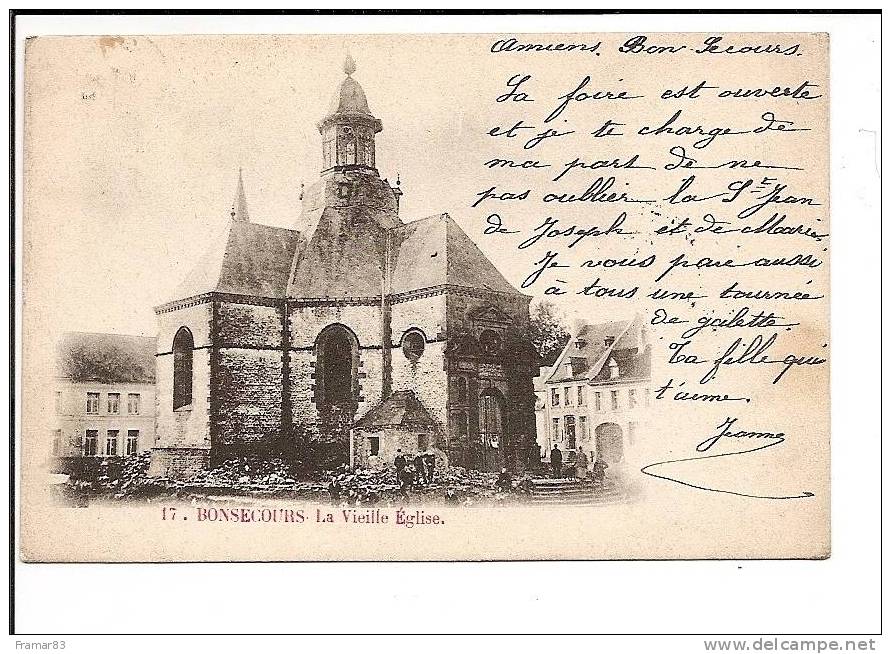 Amiens. Bon Secours.
La foire est ouverte
et je te charge de
ma part de ne
pas oublier la St Jean
de Joseph et de Marie.
Je vous paie aussi
à tous une tournée
de galette.
Ta fille qui
t'aime.
Jeanne
17. BONSECOURS- La Vieille Église.
Framar83
www.delcampe.net